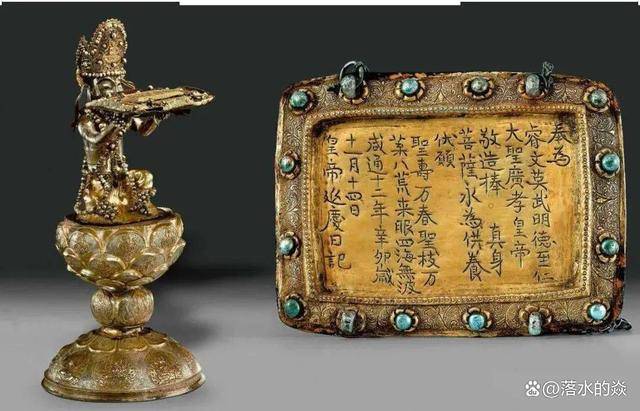 奉為
睿文英武明德至仁
大聖廣孝皇帝
敬造捧真身
菩薩永為供養
伏願
聖壽万春聖枝万
葉八荒来服四海無波
咸通十二年辛卯歲
十一月十四日
皇帝延慶日記
@落水的焱